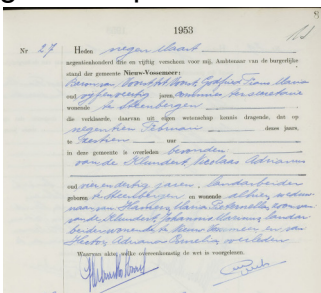 1953
Nr 27 Heden negen Maart
negentienhonderd drie en vijftig verscheen voor mij, Ambtenaar van de burgerlijke
stand der gemeente Nieuw-Vossemeer:
Frans Maria
oud vijfenveertig jaren, ter secretarie
wonende te Steenbergen
die verklaarde, daarvan uit eigen wetenschap kennis dragende, dat op
negentien Februari dezes jaars,
te uur
in deze gemeente is overleden bevonden
van de Klundert, Nicolaas Adrianus
oud jaren, landarbeider
geboren te Steenbergen en wonende alhier, weduw-
naar van Maria Petronella, zoon van
van de Klundert, Johannes Marinus, landar-
beider wonende te Nieuw Vossemeer en van
Hector, Adriana Cornelia, overleden
Waarvan akte, welke overeenkomstig de wet is voorgelezen.